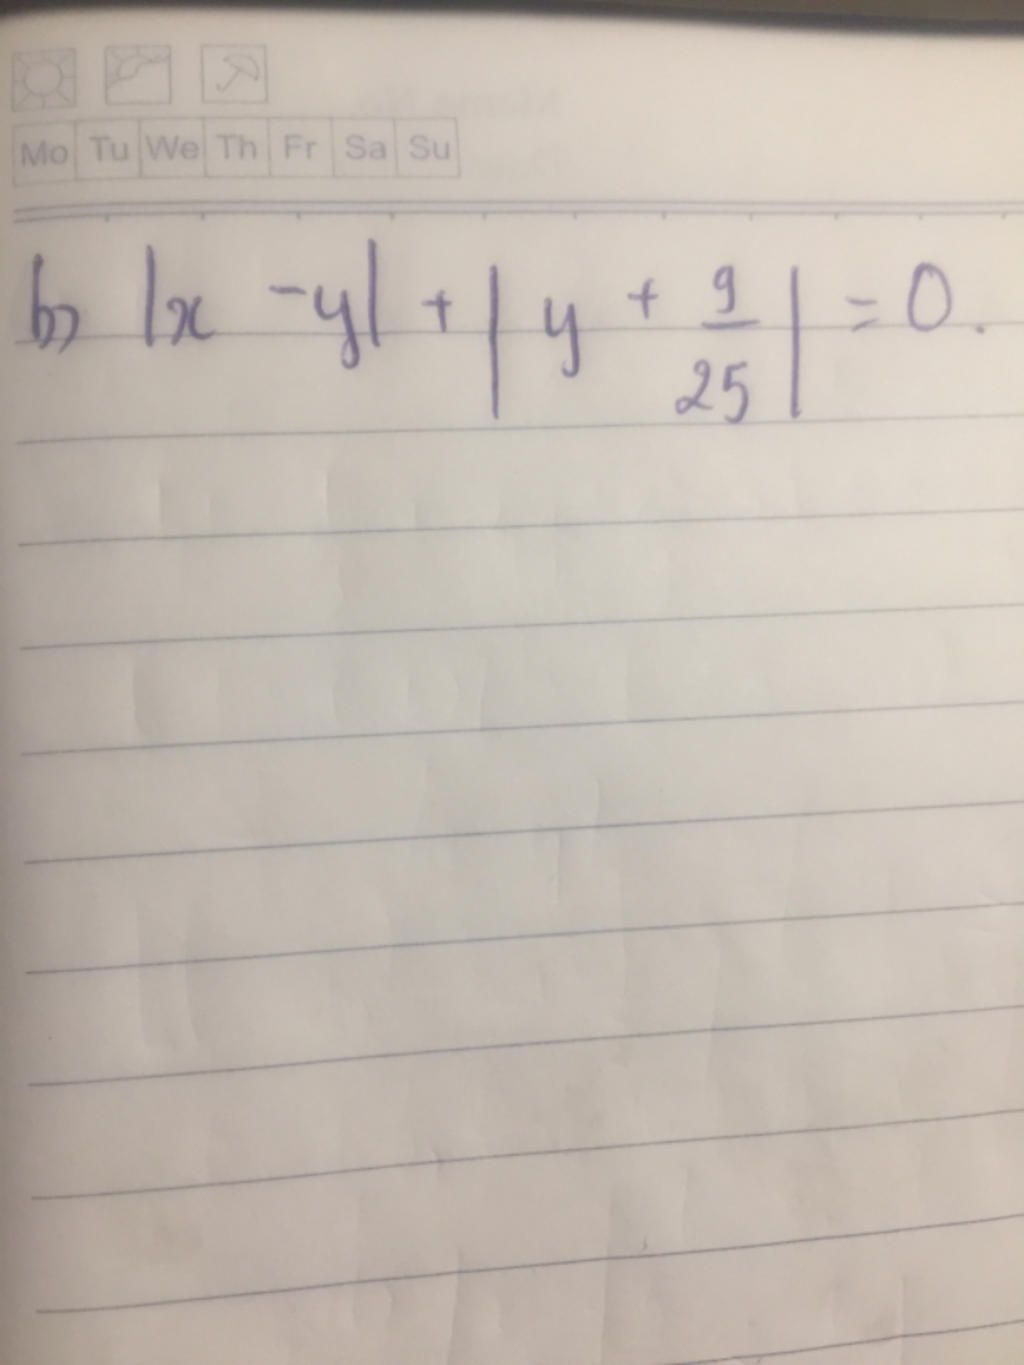 Mo Tu We Th Fr Sa Su
b) |x - y| + | y + 9/25 | = 0.